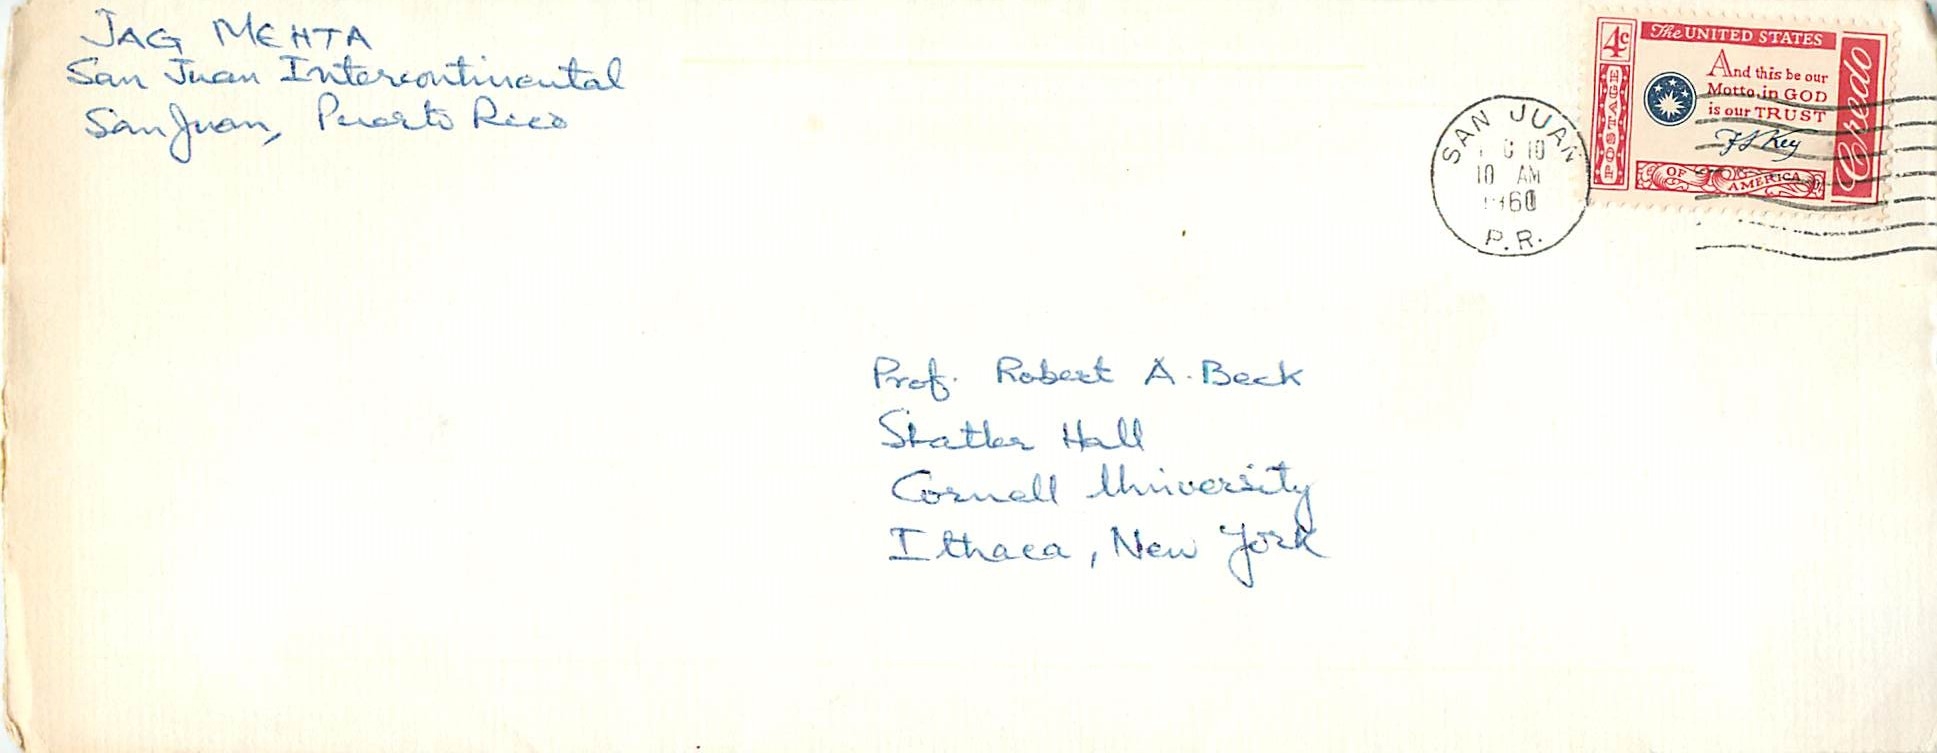 JAG MEHTA
San Juan Intercontinental
San Juan, Puerto Rico
SAN JUAN
10
10 AM
1960
P.R.
4¢
The UNITED STATES
POSTAGE
And this be our
Motto in GOD
is our TRUST
F S Key
Credo
OF AMERICA
Prof. Robert A. Beck
Statler Hall
Cornell University
Ithaca, New York